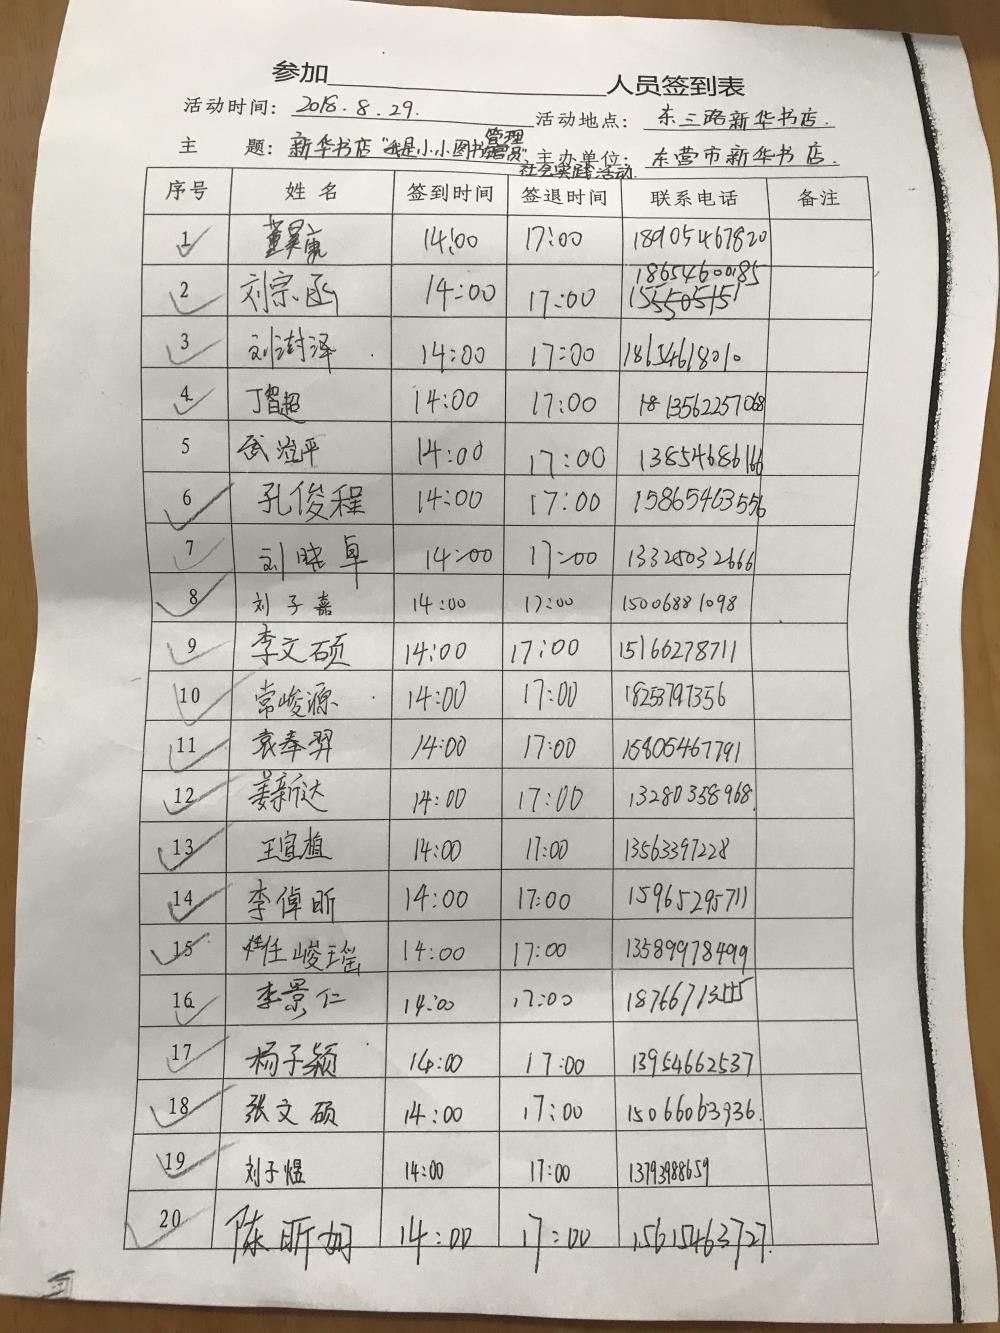 参加 人员签到表
活动时间: 2018.8.29. 活动地点: 东三路新华书店.
主 题: 新华书店"我是小小图书管理员" 主办单位: 东营市新华书店.
社会实践活动.
序号 姓名 签到时间 签退时间 联系电话 备注
1 董昊康 14:00 17:00 18905467820
18654600185
2 刘宗函 14:00 17:00
3 刘澍泽 14:00 17:00 18654618010
4 丁智超 14:00 17:00 13562257068
5 武澄平 14:00 17:00 13854686166
6 孔俊程 14:00 17:00 15865463556
7 刘晓卓 14:00 17:00 13325032666
8 刘子嘉 14:00 17:00 15006881098
9 李文硕 14:00 17:00 15166278711
10 常峻源 14:00 17:00 18253797356
11 袁奉羿 14:00 17:00 15805467791
12 姜新达 14:00 17:00 13280358968.
13 王宜植 14:00 17:00 13563397228
14 李倬昕 14:00 17:00 15965295711
15 任峻瑶 14:00 17:00 13589978499
16 李景仁 14:00 17:00
17 杨子颖 14:00 17:00 13954662537
18 张文硕 14:00 17:00 15066063936.
19 刘子煜 14:00 17:00 13793988659
20 陈昕妍 14:00 17:00 15615463727.